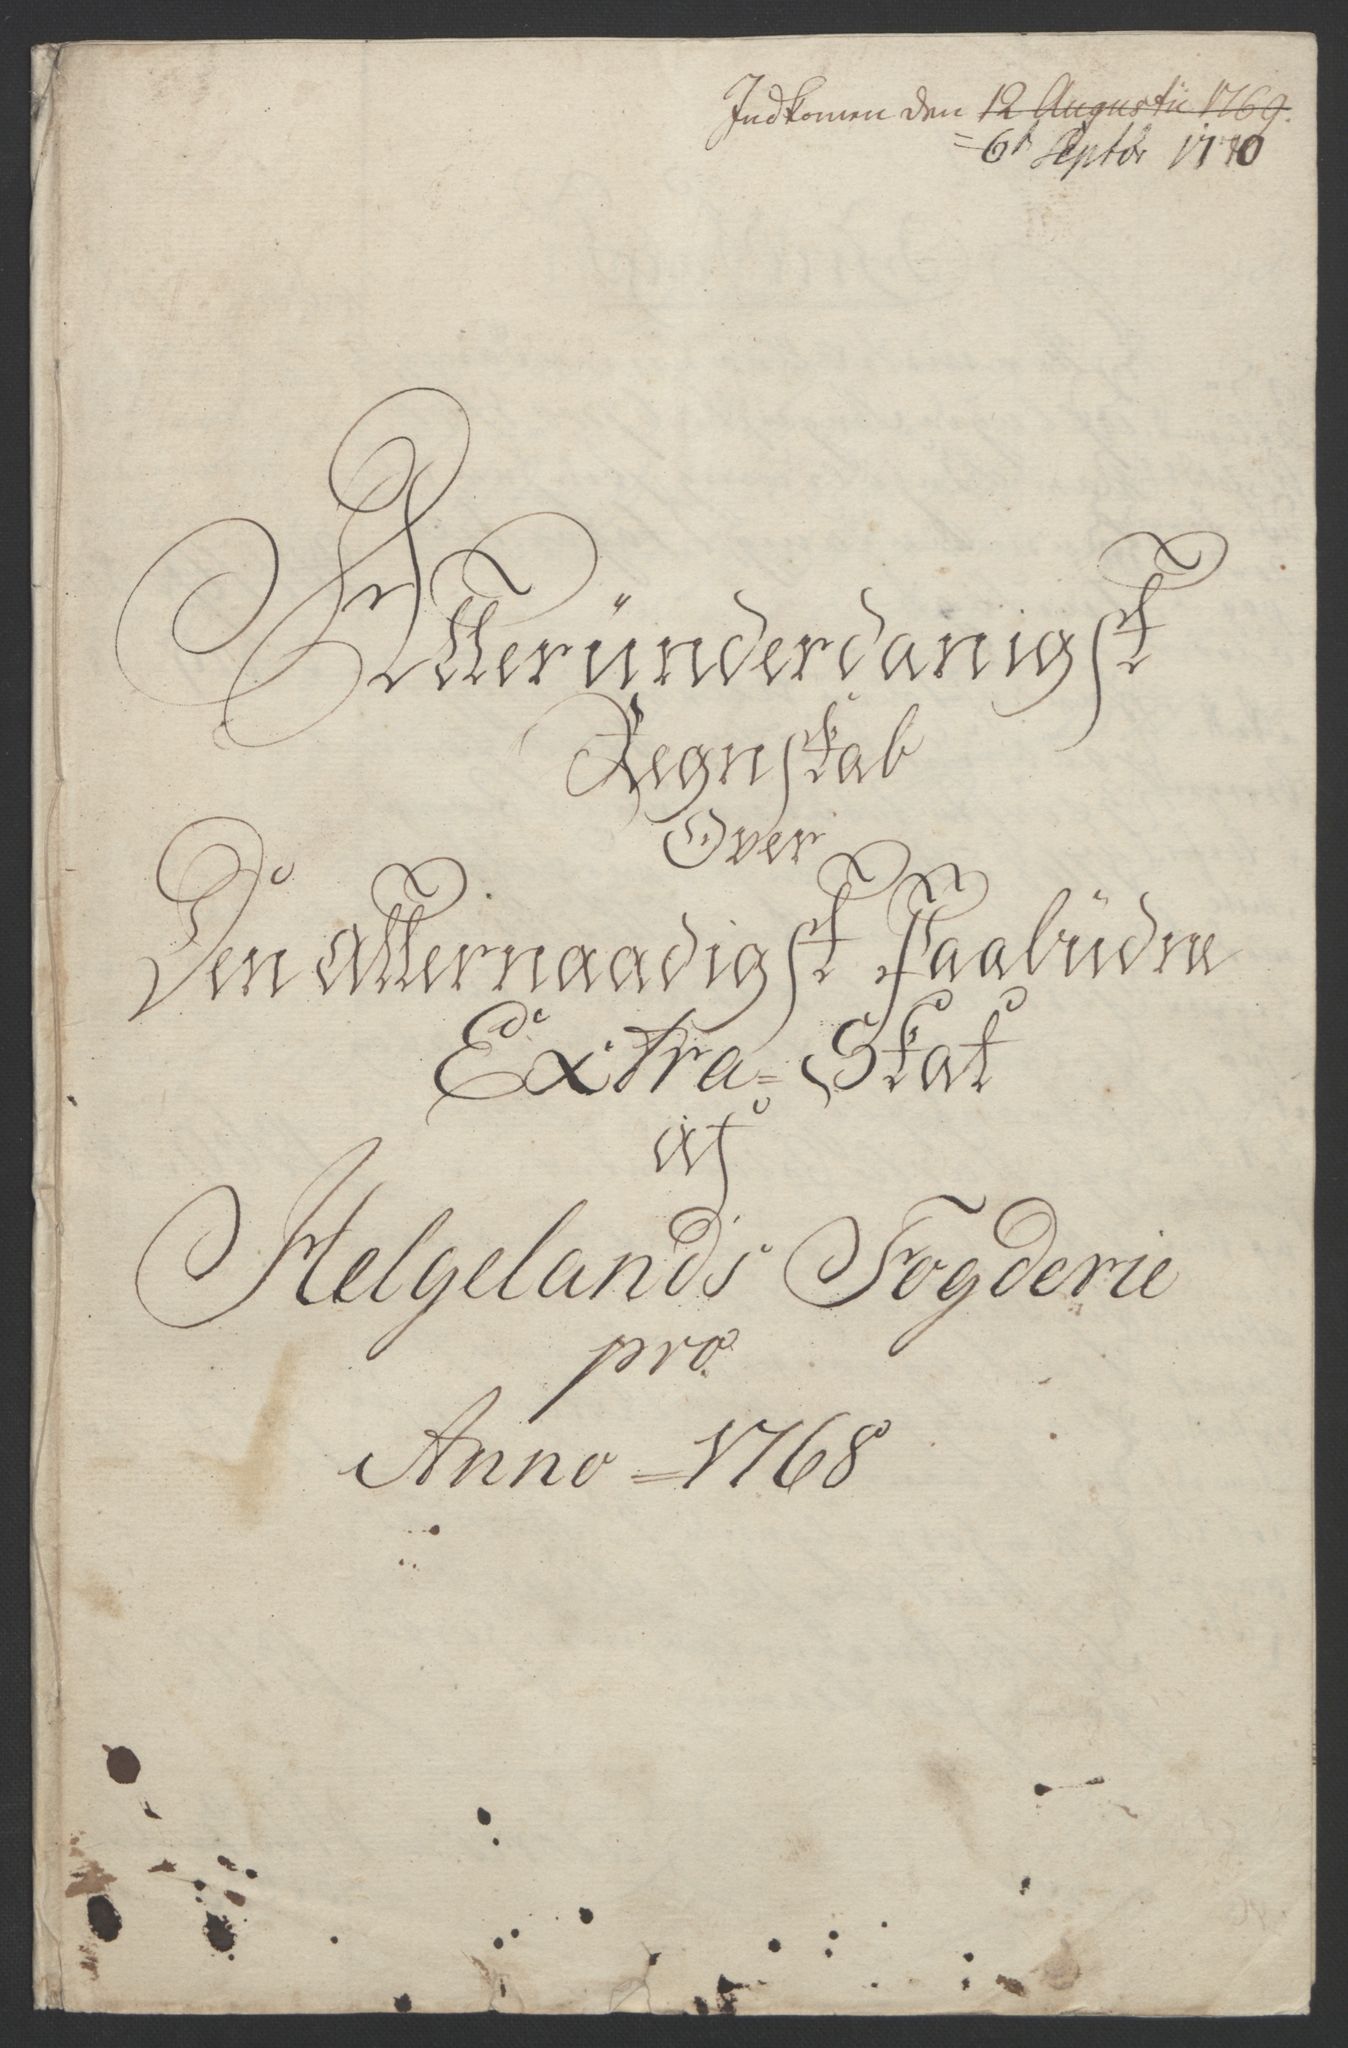 Indkomen den 12 Augusti 1769.
= 6t Septbr 1770
Alleründerdanigst
Regnskab
Over
Den allernaadigst Paabüdne
Extra=Skat
af
Helgelands Fogderie
pro.
Anno = 1768